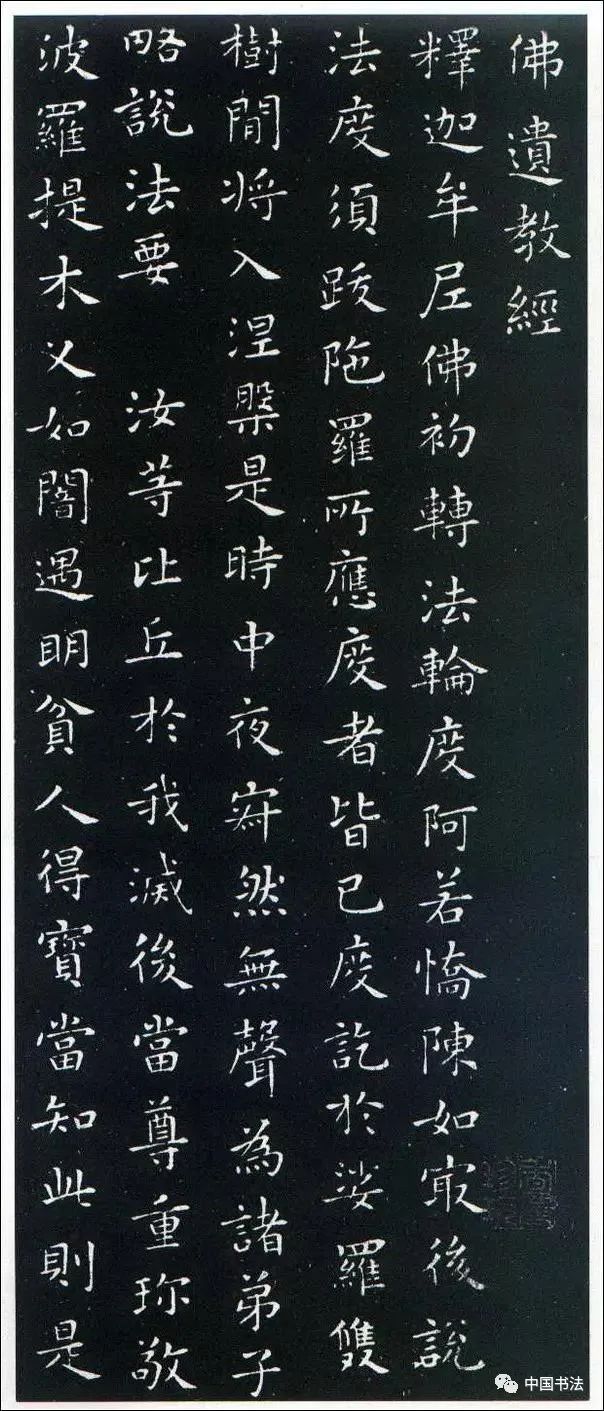 佛遺教經
釋迦牟尼佛初轉法輪度阿若憍陳如冣後說
法度須跋陁羅所應度者皆已度訖於娑羅雙
樹間将入涅槃是時中夜寂然無聲為諸弟子
略說法要 汝等比丘於我滅後當尊重珎敬
波羅提木叉如闇遇明貧人得寶當知此則是
中国书法